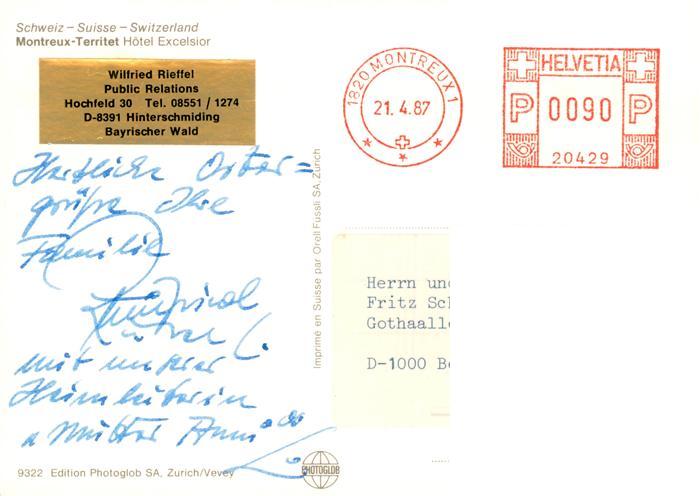 Schweiz – Suisse – Switzerland
Montreux-Territet Hôtel Excelsior
Wilfried Rieffel
Public Relations
Hochfeld 30 Tel. 08551 / 1274
D-8391 Hinterschmiding
Bayrischer Wald
1820 MONTREUX 1
21.4.87
HELVETIA
P 0090 P
20429
Herzliche Oster=
grüße Ihre
Familie
mit unserer
Heimleiterin
Mutter Anni
Imprimé en Suisse par Orell Füssli SA, Zurich
Herrn und
Fritz Sch
Gothaalle
D-1000 Be
9322 Edition Photoglob SA, Zurich/Vevey
PHOTOGLOB